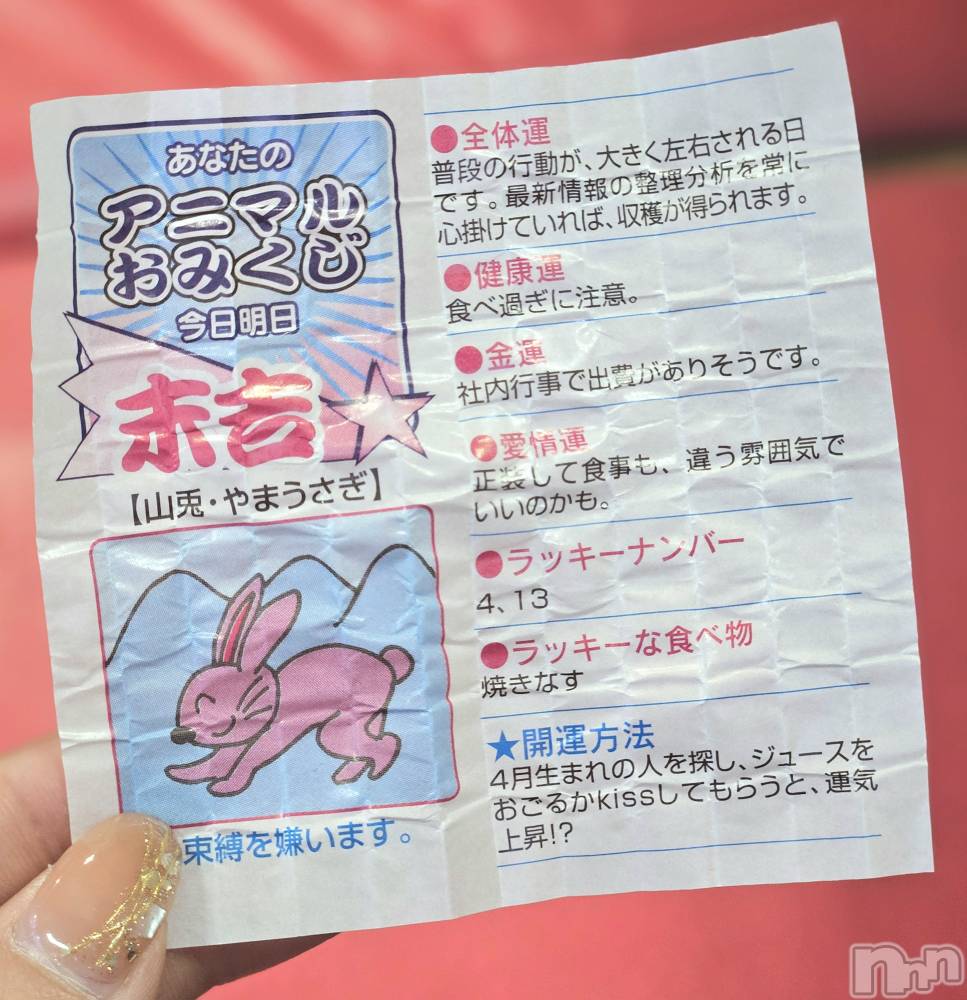 あなたの
アニマル
おみくじ
今日明日
末吉
【山兎・やまうさぎ】
束縛を嫌います。
●全体運
普段の行動が、大きく左右される日
です。最新情報の整理分析を常に
心掛けていれば、収穫が得られます。
●健康運
食べ過ぎに注意。
●金運
社内行事で出費がありそうです。
●愛情運
正装して食事も、違う雰囲気で
いいのかも。
●ラッキーナンバー
4、13
●ラッキーな食べ物
焼きなす
★開運方法
4月生まれの人を探し、ジュースを
おごるかkissしてもらうと、運気
上昇!?
nnn